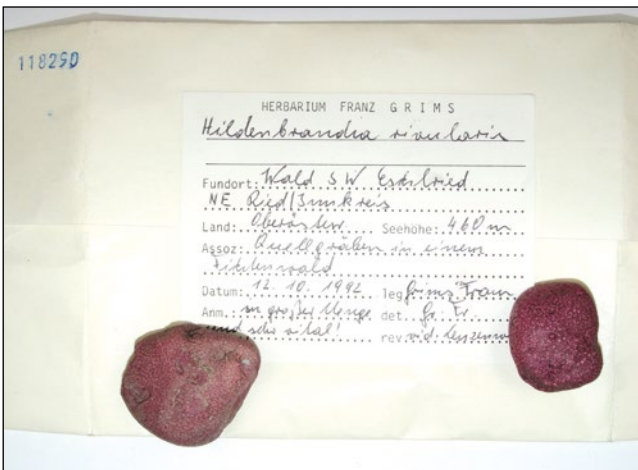 118290
HERBARIUM FRANZ GRIMS
Hildenbrandia rivularis
Fundort: Wald SW
NE Ried/Innkreis
Land: Oberösterr. Seehöhe: 460 m
Assoz: Quellgräben in einem
Fichtenwald
Datum: 12. 10. 1992 leg Grims Franz
Anm. in großer Menge det. Gr. Fr.
und sehr vital! rev. vid.